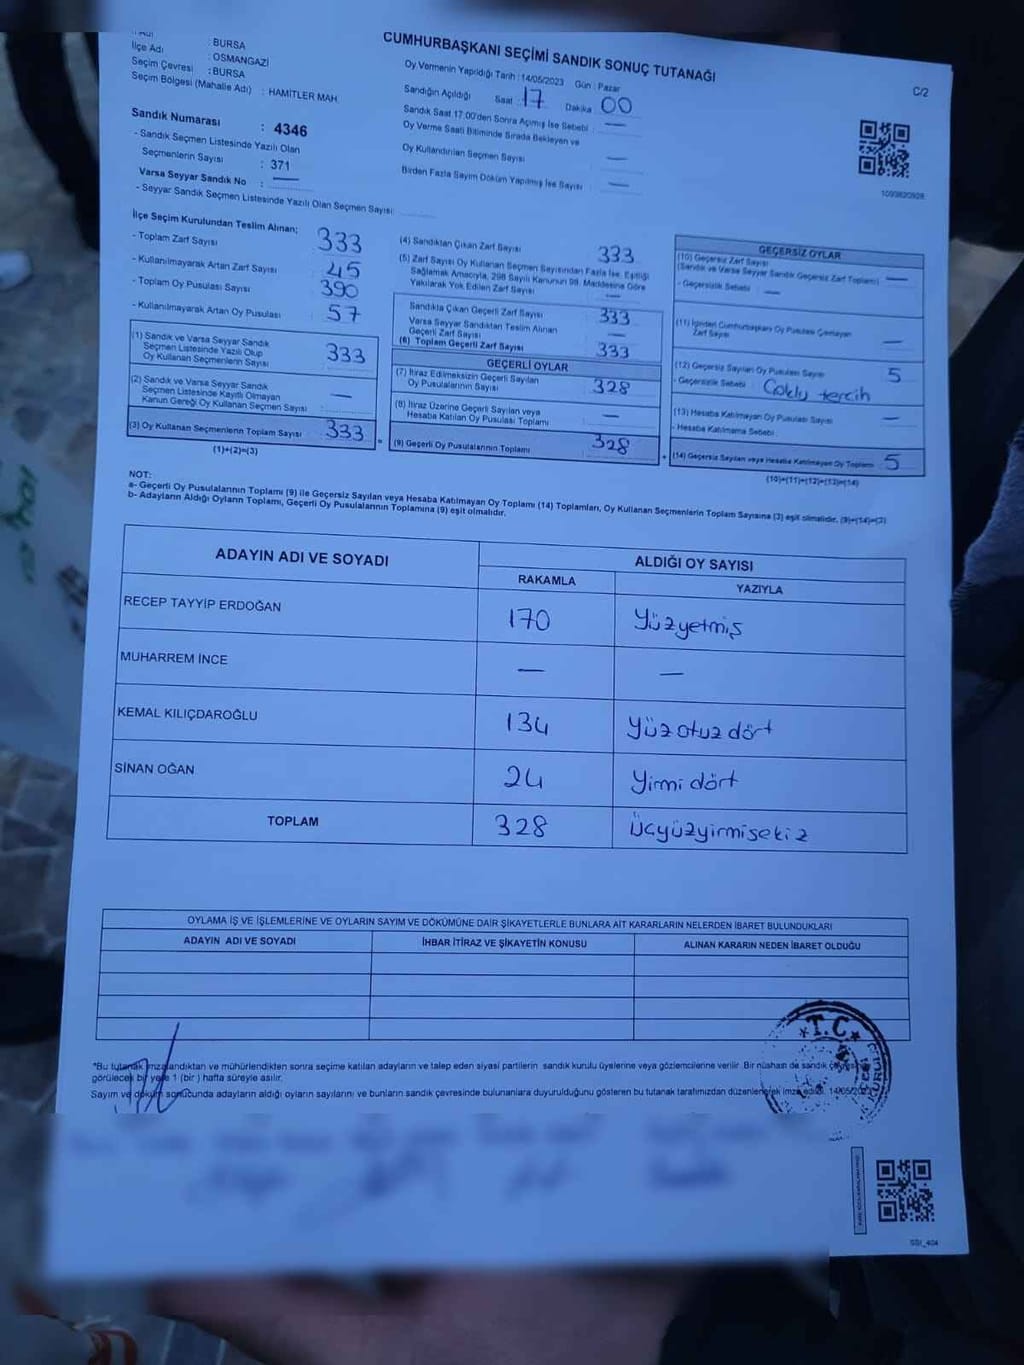 CUMHURBAŞKANI SEÇİMİ SANDIK SONUÇ TUTANAĞI
C/2
: BURSA
İlçe Adı : OSMANGAZİ
Seçim Çevresi : BURSA
Seçim Bölgesi (Mahalle Adı) : HAMİTLER MAH.
Sandık Numarası : 4346
- Sandık Seçmen Listesinde Yazılı Olan
Seçmenlerin Sayısı : 371
Varsa Seyyar Sandık No : —
- Seyyar Sandık Seçmen Listesinde Yazılı Olan Seçmen Sayısı:
Oy Vermenin Yapıldığı Tarih : 14/05/2023 Gün : Pazar
Sandığın Açıldığı Saat : 17 Dakika : 00
Sandık Saat 17.00'den Sonra Açılmış İse Sebebi : —
Oy Verme Saati Bitiminde Sırada Bekleyen ve
Oy Kullandırılan Seçmen Sayısı : —
Birden Fazla Sayım Döküm Yapılmış İse Sayısı : —
1093820928
İlçe Seçim Kurulundan Teslim Alınan;
- Toplam Zarf Sayısı 333
- Kullanılmayarak Artan Zarf Sayısı 45
- Toplam Oy Pusulası Sayısı 390
- Kullanılmayarak Artan Oy Pusulası 57
(1) Sandık ve Varsa Seyyar Sandık
Seçmen Listesinde Yazılı Olup
Oy Kullanan Seçmenlerin Sayısı 333
(2) Sandık ve Varsa Seyyar Sandık
Seçmen Listesinde Kayıtlı Olmayan
Kanun Gereği Oy Kullanan Seçmen Sayısı —
(3) Oy Kullanan Seçmenlerin Toplam Sayısı 333
(1)+(2)=(3)
(4) Sandıktan Çıkan Zarf Sayısı 333
(5) Zarf Sayısı Oy Kullanan Seçmen Sayısından Fazla İse, Eşitliği
Sağlamak Amacıyla, 298 Sayılı Kanunun 98. Maddesine Göre
Yakılarak Yok Edilen Zarf Sayısı —
Sandıkta Çıkan Geçerli Zarf Sayısı 333
Varsa Seyyar Sandıktan Teslim Alınan
Geçerli Zarf Sayısı
(6) Toplam Geçerli Zarf Sayısı 333
GEÇERLİ OYLAR
(7) İtiraz Edilmeksizin Geçerli Sayılan
Oy Pusulalarının Sayısı 328
(8) İtiraz Üzerine Geçerli Sayılan veya
Hesaba Katılan Oy Pusulası Toplamı —
(9) Geçerli Oy Pusulalarının Toplamı 328
GEÇERSİZ OYLAR
(10) Geçersiz Zarf Sayısı
(Sandık ve Varsa Seyyar Sandık Geçersiz Zarf Toplamı) —
- Geçersizlik Sebebi : —
(11) İçinden Cumhurbaşkanı Oy Pusulası Çıkmayan
Zarf Sayısı —
(12) Geçersiz Sayılan Oy Pusulası Sayısı 5
- Geçersizlik Sebebi : Çoklu tercih
(13) Hesaba Katılmayan Oy Pusulası Sayısı —
- Hesaba Katılmama Sebebi :
(14) Geçersiz Sayılan veya Hesaba Katılmayan Oy Toplamı 5
(10)+(11)+(12)+(13)=(14)
NOT:
a- Geçerli Oy Pusulalarının Toplamı (9) ile Geçersiz Sayılan veya Hesaba Katılmayan Oy Toplamı (14) Toplamları, Oy Kullanan Seçmenlerin Toplam Sayısına (3) eşit olmalıdır. (9)+(14)=(3)
b- Adayların Aldığı Oyların Toplamı, Geçerli Oy Pusulalarının Toplamına (9) eşit olmalıdır.
ADAYIN ADI VE SOYADI ALDIĞI OY SAYISI
RAKAMLA YAZIYLA
RECEP TAYYİP ERDOĞAN 170 Yüzyetmiş
MUHARREM İNCE — —
KEMAL KILIÇDAROĞLU 134 Yüzotuzdört
SİNAN OĞAN 24 Yirmi dört
TOPLAM 328 Üçyüzyirmisekiz
OYLAMA İŞ VE İŞLEMLERİNE VE OYLARIN SAYIM VE DÖKÜMÜNE DAİR ŞİKAYETLERLE BUNLARA AİT KARARLARIN NELERDEN İBARET BULUNDUKLARI
ADAYIN ADI VE SOYADI İHBAR İTİRAZ VE ŞİKAYETİN KONUSU ALINAN KARARIN NEDEN İBARET OLDUĞU
*Bu tutanak imzalandıktan ve mühürlendikten sonra seçime katılan adayların ve talep eden siyasi partilerin sandık kurulu üyelerine veya gözlemcilerine verilir. Bir nüshası da sandık
görülecek bir yere 1 (bir) hafta süreyle asılır.
Sayım ve döküm sonucunda adayların aldığı oyların sayılarını ve bunların sandık çevresinde bulunanlara duyurulduğunu gösteren bu tutanak tarafımızdan düzenlenerek imza edildi.
T.C.
SSI_404